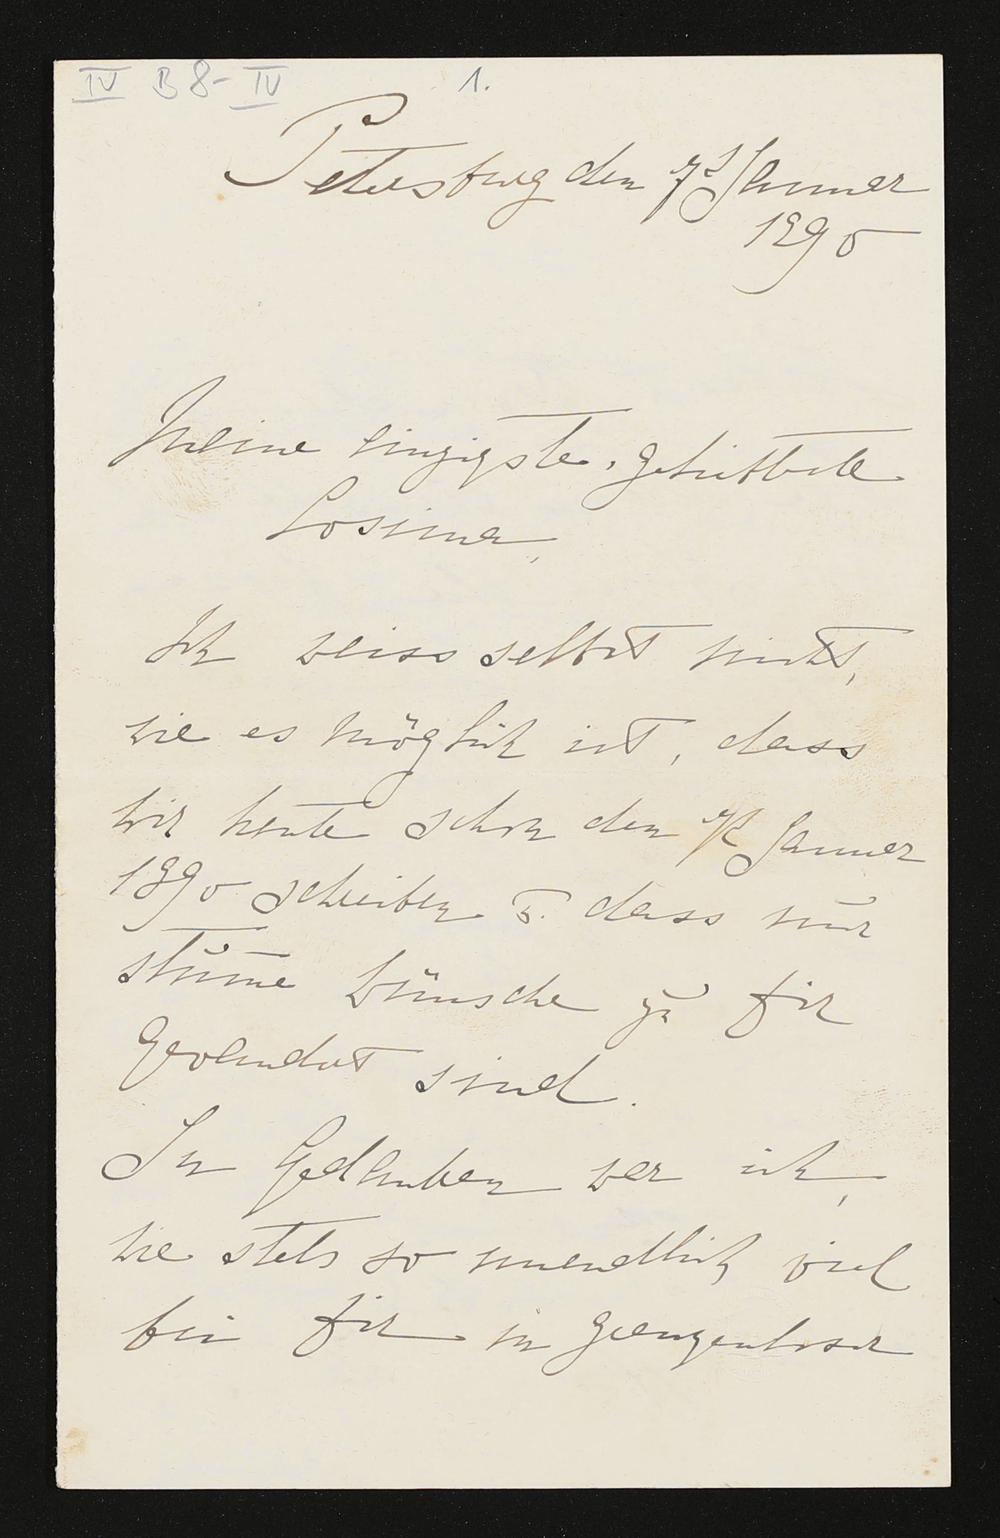 IV B 8 - IV 1.
Petersburg den 7t Jänner
1890
Meine einzigste, geliebteste
Cosima,
Ich weiss selbst nicht,
wie es möglich ist, dass
wir heute schon den Jänner
1890 schreiben u. dass nur
stum̄e Wünsche zu Dir
gewandert sind.
In Gedanken war ich,
wie stets so unendlich viel
bei Dir in grenzenloser